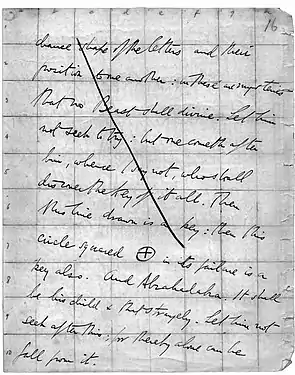 a b c d e f g h 16
1 chance shape of the letters and their
2 position to one another: in these are mysteries
3 that no Beast shall divine. Let him
4 not seek to try: but one cometh after
5 him, whence I say not, who shall
discover the Key of it all. Then
6 this line drawn is a key: then this
7 circle squared in its failure is a
8 key also. And Abrahadabra. It shall
be his child & that strangely. Let him not
9 seek after this; for thereby alone can he
10 fall from it.